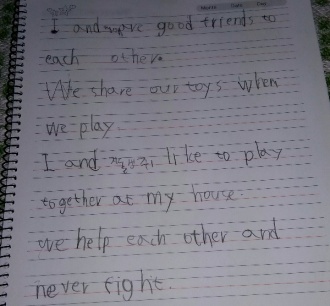 I and are good friends to
each other.
We share our toys when
we play.
I and like to play
together at my house.
we help each other and
never fight.